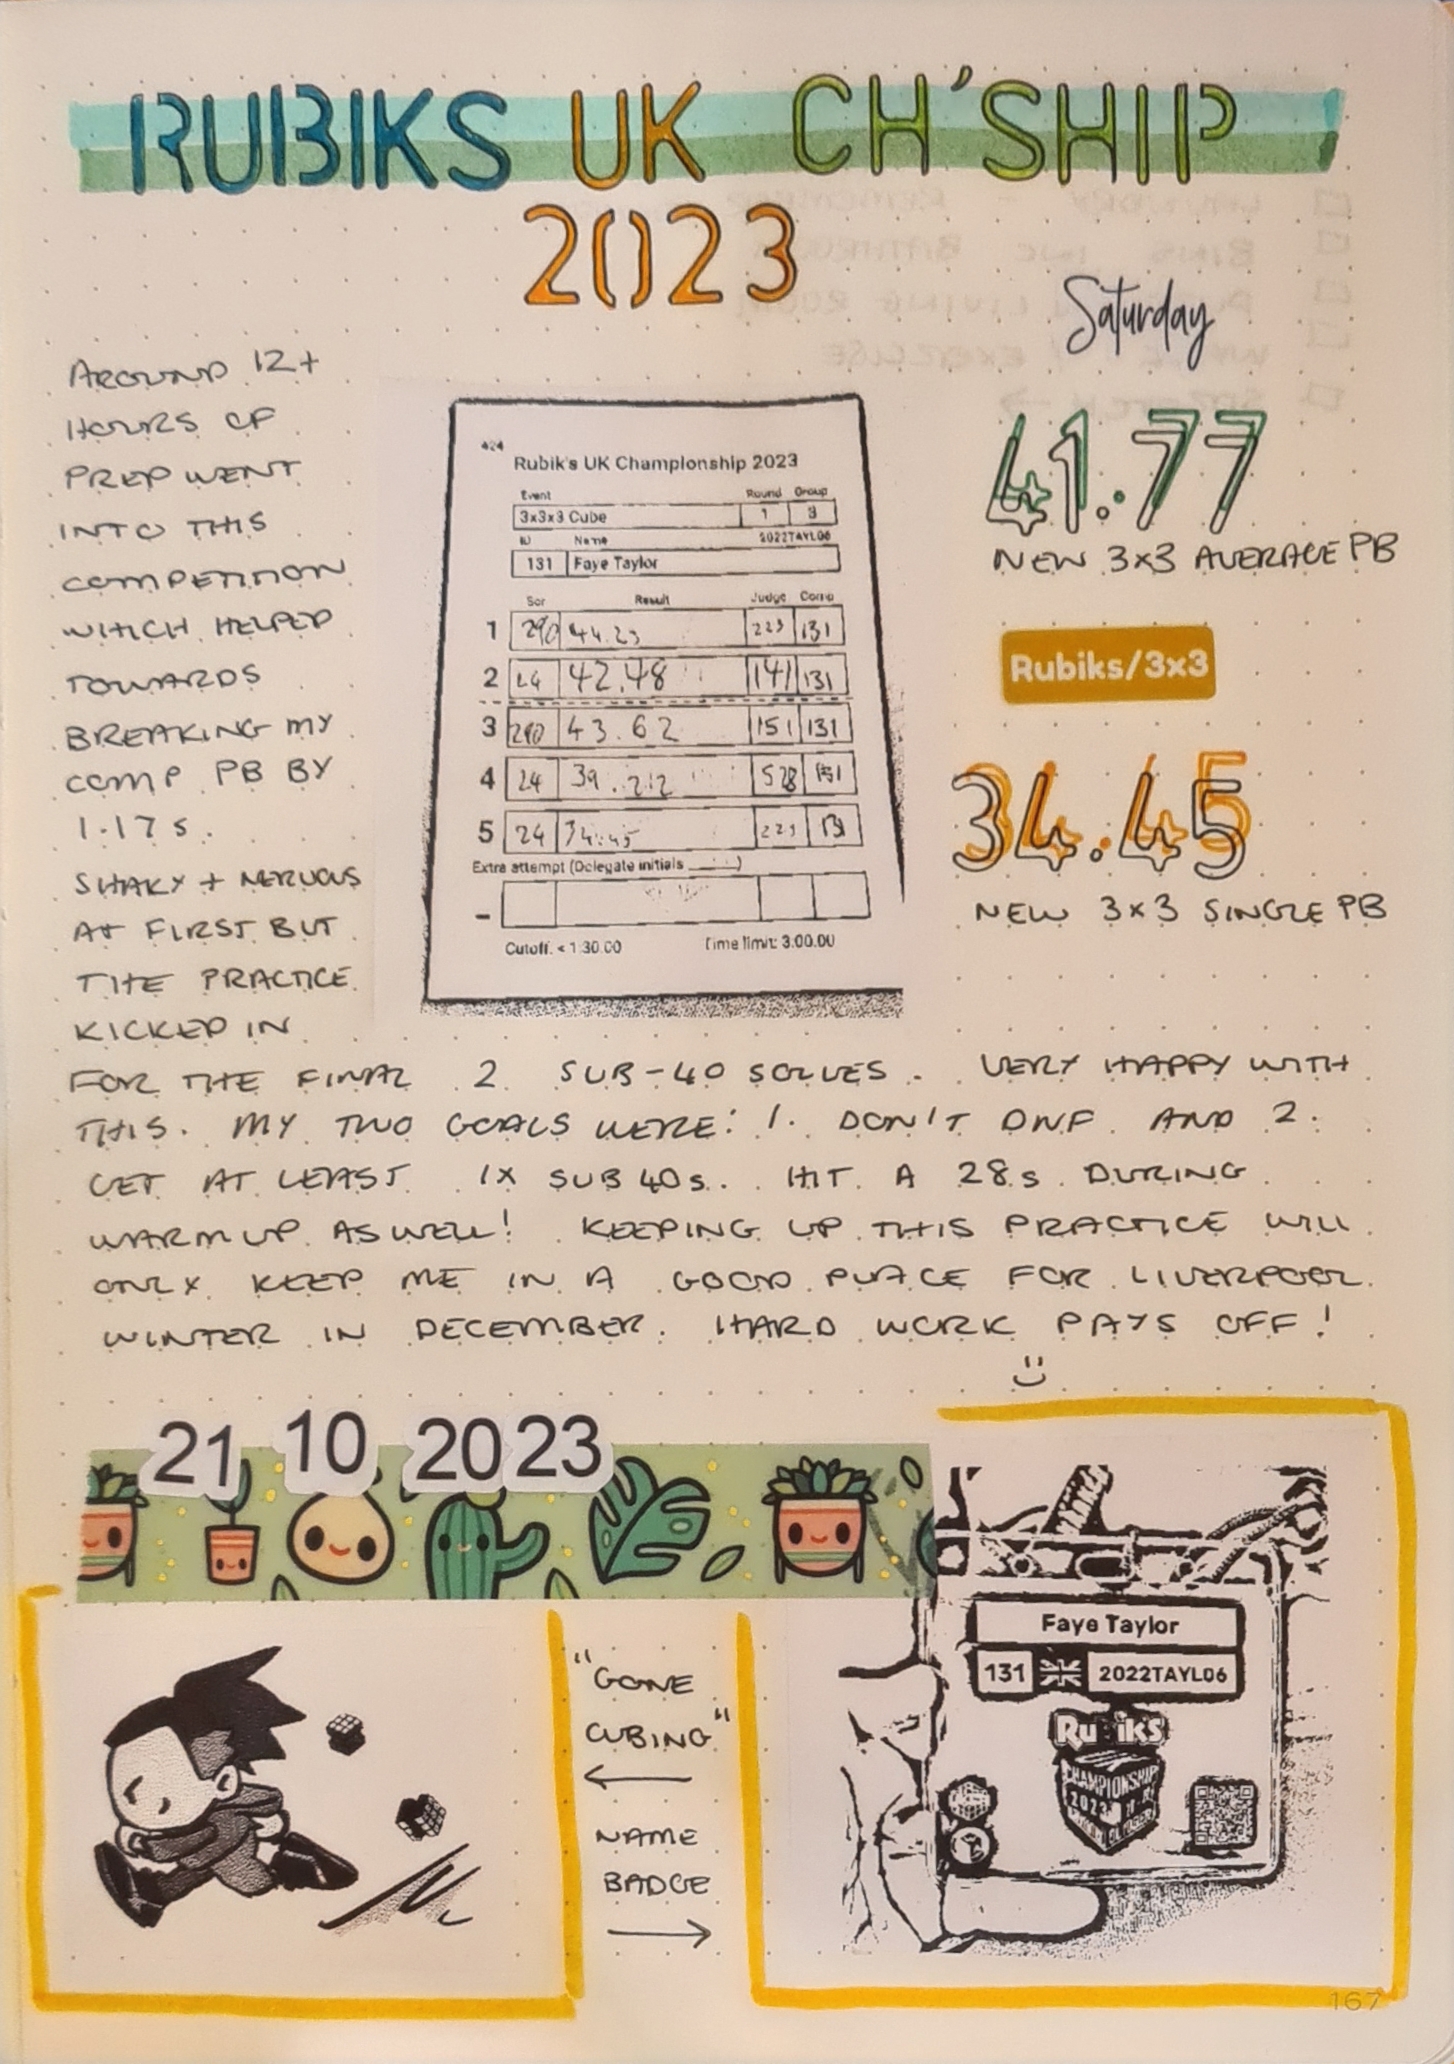 RUBIKS UK CH'SHIP
2023
Saturday
AROUND 12+
HOURS OF
PREP WENT
INTO THIS
COMPETITION
WHICH HELPED
TOWARDS
BREAKING MY
COMP PB BY
1.17s.
SHAKY + NERVOUS
AT FIRST BUT
THE PRACTICE
KICKED IN
424
Rubik's UK Championship 2023
Event Round Group
3x3x3 Cube 1 3
ID Name 2022TAYL06
131 Faye Taylor
Scr Result Judge Comp
1 290 44.23 223 131
2 24 42.48 141 131
3 290 43.62 151 131
4 24 39. 528 131
5 24 34.45 223 131
Extra attempt (Delegate initials ______)
-
Cutoff: < 1:30.00 Time limit: 3:00.00
41.77
NEW 3x3 AVERAGE PB
Rubiks/3x3
34.45
NEW 3x3 SINGLE PB
FOR THE FINAL 2 SUB-40 SOLVES. VERY HAPPY WITH
THIS. MY TWO GOALS WERE: 1. DON'T DNF AND 2.
GET AT LEAST 1X SUB 40s. HIT A 28s DURING
WARM UP AS WELL! KEEPING UP THIS PRACTICE WILL
ONLY KEEP ME IN A GOOD PLACE FOR LIVERPOOL
WINTER IN DECEMBER. HARD WORK PAYS OFF!
21 10 2023
"GONE
CUBING"
←
NAME
BADGE
→
Faye Taylor
131 2022TAYL06
Rubiks
CHAMPIONSHIP
2023
167